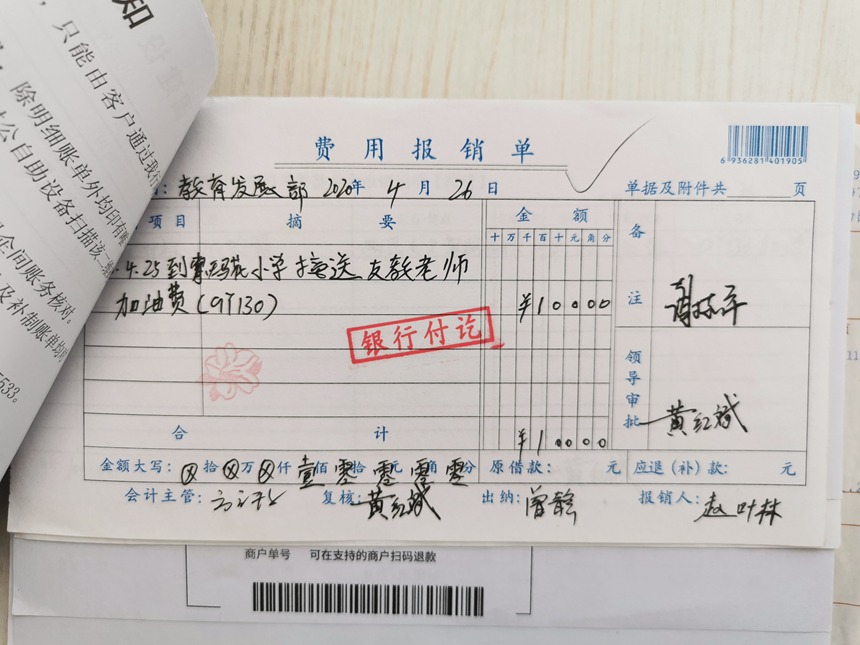 知
，只能由客户通过我行
除明细账单外均印有
公自助设备扫描该二维
企间账务核对。
及补制账单均
533。
费用报销单
6 936281 401905
：教育发展部 2020年 4月 26日 单据及附件共 页
项目 摘要 金额 备注
十 万 千 百 十 元 角 分
.4.25到索玛花小学接送支教老师
加油费(9Y130) ¥10000
银行付讫
领导审批 黄红斌
合计 ¥10000
金额大写：ⓧ拾ⓧ万ⓧ仟壹佰零拾零元零角零分 原借款： 元 应退（补）款： 元
会计主管： 复核：黄红斌 出纳：曾懿 报销人：赵叶林
商户单号 可在支持的商户扫码退款